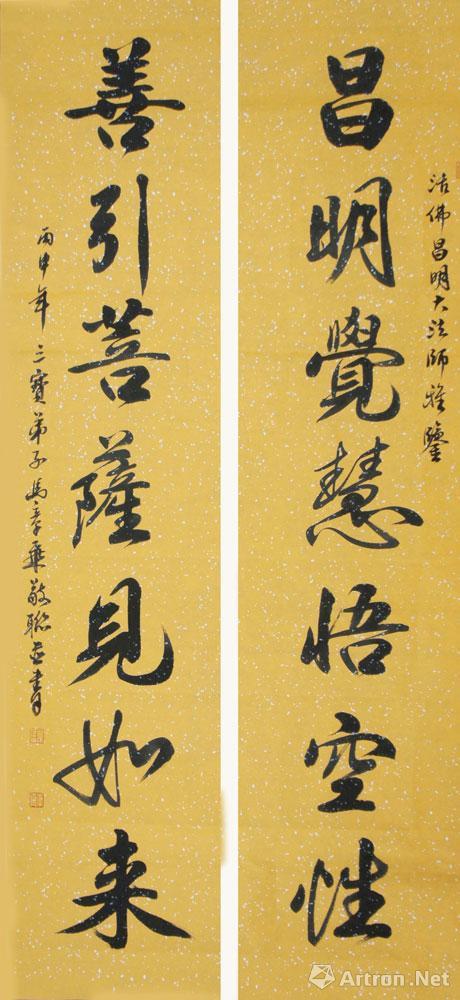 活佛昌明大法師雅鑒
昌明覺慧悟空性
善引菩薩見如来
丙申年三寶弟子馬章乘敬聯並書
Artron.Net